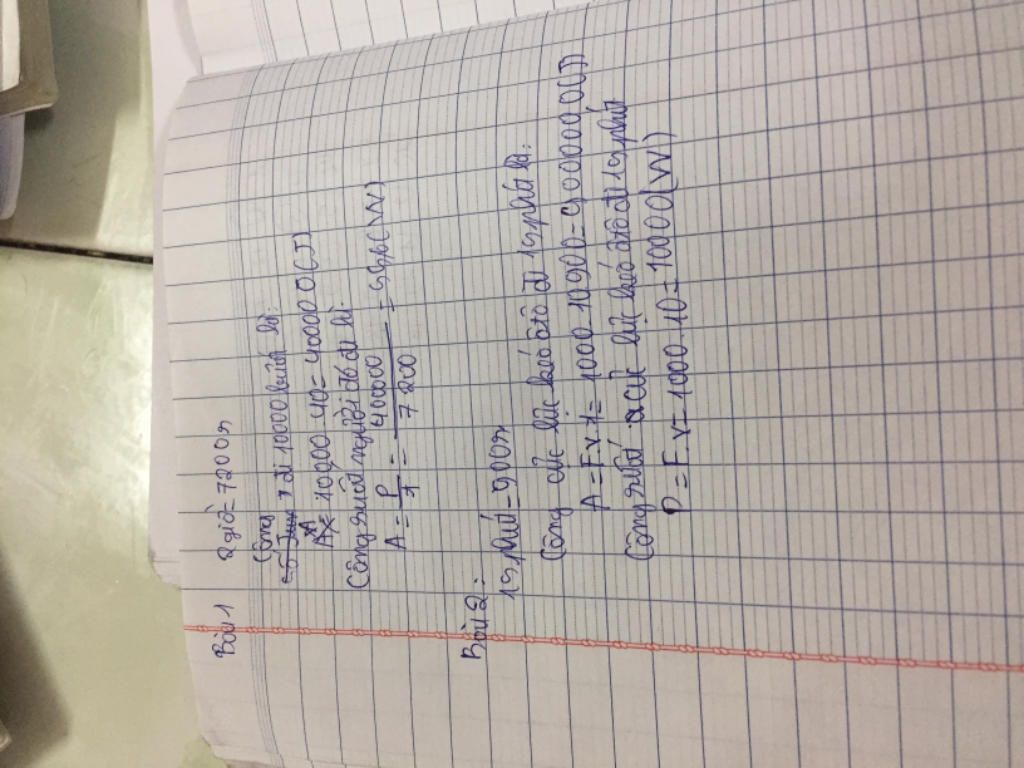 Bài 1
2 giờ = 7200s
Công
đi 10000 bước là:
A = 10000.40 = 400000(J)
Công suất người đó đi là:
A = P/t = 400000/7200 = 55,56(W)
Bài 2:
15 phút = 900s
Công của lực kéo ôtô đi 15 phút là:
A = F.v.t = 1000.10.900 = 9,000000,0(J)
Công suất của lực kéo ôtô đi 15 phút
P = F.v = 1000.10 = 10000(W)